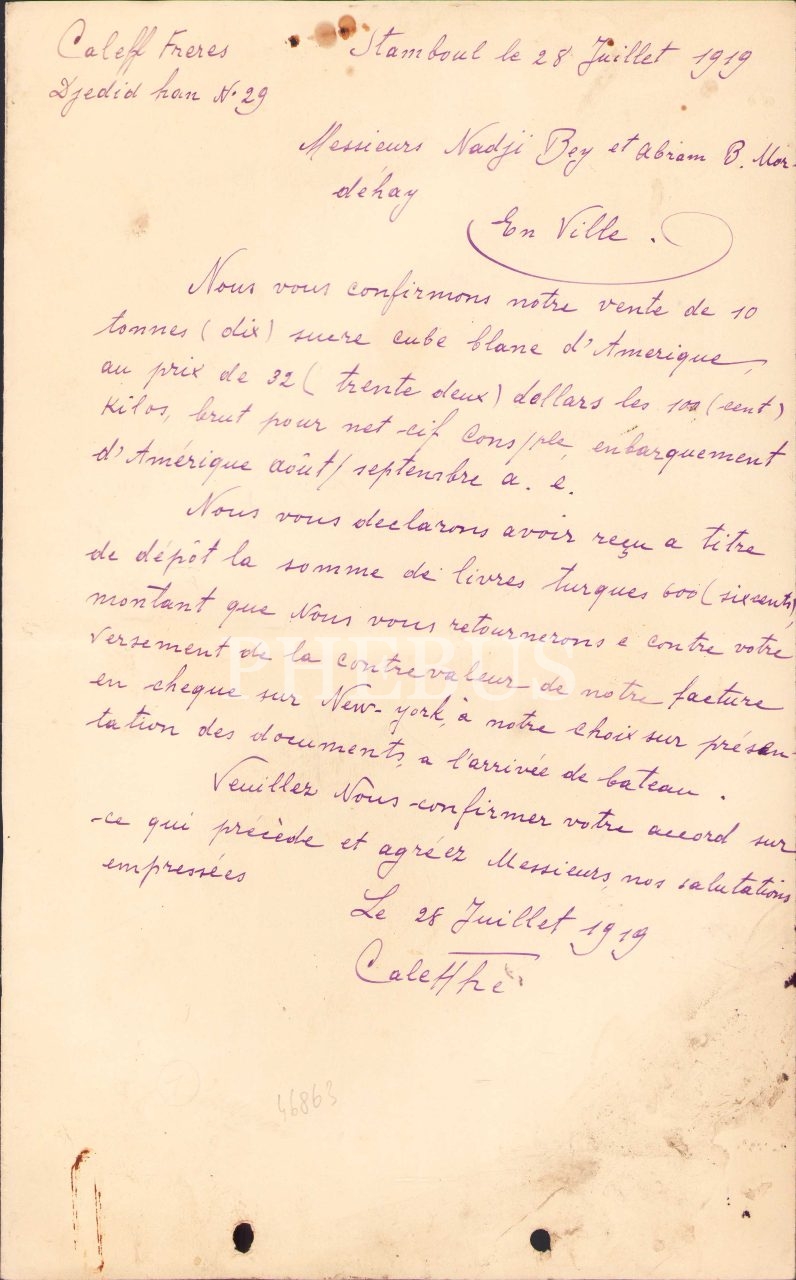 Caleff Freres
Stamboul le 28 Juillet 1919
Djedid han No 29
Messieurs Nadji Bey et Abram B. Mor-
dehay
En Ville.
Nous vous confirmons notre vente de 10
tonnes (dix) sucre cube blanc d'Amerique,
au prix de 32 (trente deux) dollars les 100 (cent)
Kilos, brut pour net cif Cons/ple, enbarquement
d'Amérique août/septenbre a. c.
Nous vous declarons avoir reçu a titre
de dépôt la somme de livres turques 600 (sixcents),
montant que Nous vous retournerons e contre votre
versement de la contrevaleur de notre facture
en cheque sur New-york, à notre choix sur présen-
tation des documents, a l'arrivée de bateau.
Veuillez Nous confirmer votre accord sur
ce qui précède et agréez Messieurs, nos salutations
empressées
Le 28 Juillet 1919
46863
PHEBUS